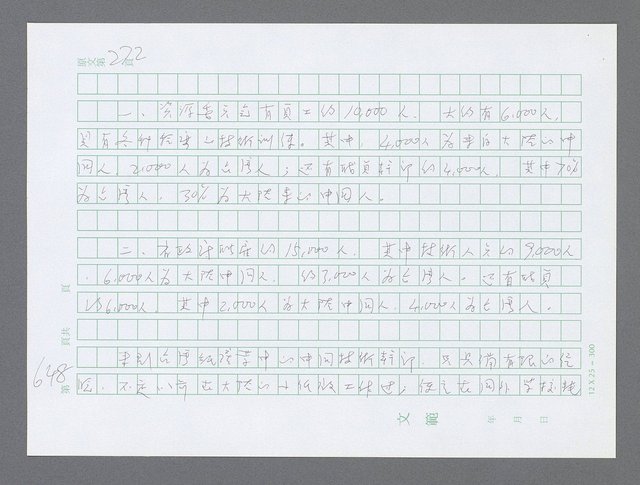 原文第272頁
一、資源委員會有員工約10,000人. 大約有6,000人.
具有各種經濟的技術訓練。其中, 4,000人為來自大陸的中
國人, 2,000人為台灣人；還有職員幹部約4,000人, 其中70%
為台灣人, 30%為大陸來的中國人.
二、行政部門約15,000人. 其中技術人员約9,000人
. 6,000人為大陸中國人. 約3,000人為台灣人. 還有職員
約6,000人. 其中2,000人為大陸中國人. 4,000人為台灣人.
來到台灣經濟業中的中國技術幹部. 只具備有限的經
第648頁共 頁
12×25=300
文範
年 月 日